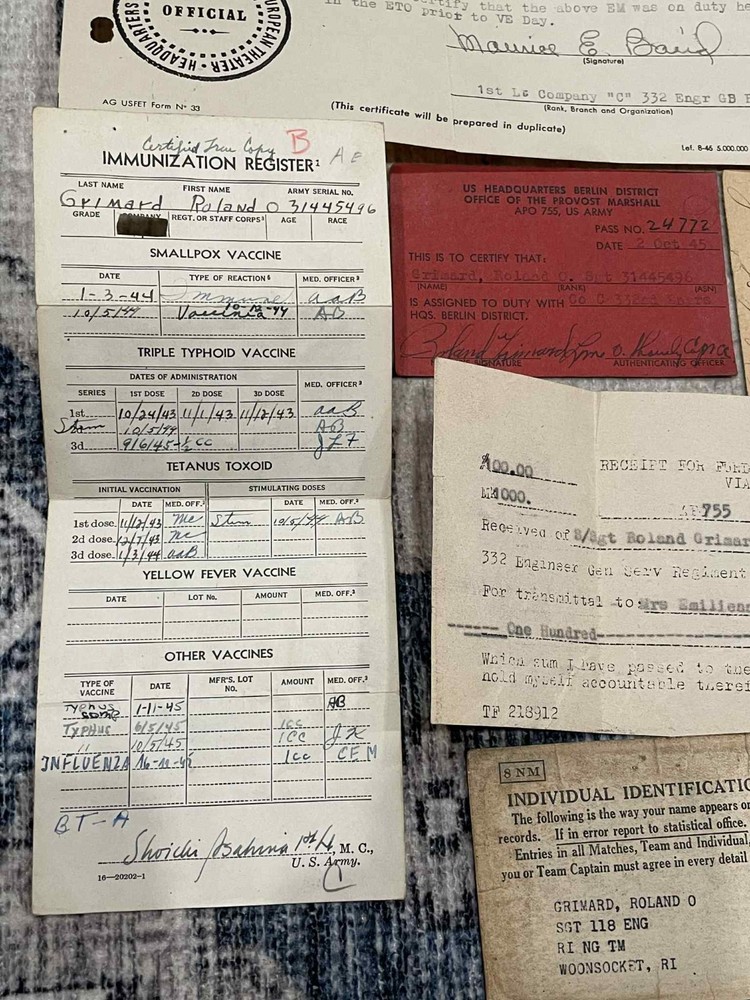 OFFICIAL
HEADQUARTERS
EUROPEAN THEATER
certify that the above EM was on duty
in the ETO prior to VE Day.
Maurice E. Baird
(Signature)
1st Lt Company "C" 332 Engr
(Rank, Branch and Organization)
AG USFET Form Nº 33
(This certificate will be prepared in duplicate)
Lef. 8-45 5.000.000
Certified True Copy B
IMMUNIZATION REGISTER¹
LAST NAME FIRST NAME ARMY SERIAL NO.
Grimard Roland O 31445496
GRADE COMPANY REGT. OR STAFF CORPS² AGE RACE
SMALLPOX VACCINE
DATE TYPE OF REACTION⁵ MED. OFFICER³
1-3-44 Immune aaB
10/5/44 Vaccinia AB
TRIPLE TYPHOID VACCINE
DATES OF ADMINISTRATION
SERIES 1ST DOSE 2D DOSE 3D DOSE MED. OFFICER³
1st 10/24/43 11/1/43 11/12/43 aaB
Stim 10/5/44 AB
3d 9/6/45-½cc JLF
TETANUS TOXOID
INITIAL VACCINATION STIMULATING DOSES
DATE MED. OFF.³ DATE MED. OFF.³
1st dose 11/12/43 Mc Stim 10/5/44 AB
2d dose 12/7/43 Mc
3d dose 1/3/44 aaB
YELLOW FEVER VACCINE
DATE LOT No. AMOUNT MED. OFF.³
OTHER VACCINES
TYPE OF VACCINE DATE MFR'S. LOT NO. AMOUNT MED. OFF.³
TYPHUS 1-11-45 AB
TYPHUS 6/5/45 1cc
" 10/5/45 1cc JK
INFLUENZA 1cc CEM
BT-A
Shoichi Asahina 1st Lt, M. C.,
U. S. Army.
16—20202-1
US HEADQUARTERS BERLIN DISTRICT
OFFICE OF THE PROVOST MARSHALL
APO 755, US ARMY
PASS NO. 24772
DATE 2 Oct 45
THIS IS TO CERTIFY THAT:
Grimard, Roland O. Sgt 31445496
(NAME) (RANK) (ASN)
IS ASSIGNED TO DUTY WITH Co C 332nd Engrs
HQS. BERLIN DISTRICT.
Roland Grimard
SIGNATURE AUTHENTICATING OFFICER
$100.00 RECEIPT FOR FUND
VIA
M1000.
755
Received of S/Sgt Roland Grimar
332 Engineer Gen Serv Regiment
For transmittal to Mrs Emilien
One Hundred
Which sum I have passed to the
hold myself accountable theref
TF 218912
8 NM
INDIVIDUAL IDENTIFICATIO
The following is the way your name appears on
records. If in error report to statistical office.
Entries in all Matches, Team and Individual,
you or Team Captain must agree in every detail
GRIMARD, ROLAND O
SGT 118 ENG
RI NG TM
WOONSOCKET, RI